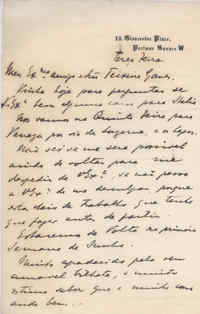 12, Gloucester Place,
Portman Square. W
Terça feira
Meu Exmo amigo Snr Teixeira Gomes,
Vinha hoje para perguntar se
V Exa tem alguma coisa para Italia
Nos vamos na Quinta feira para
Veneza por via de Lugano e os lagos.
Não sei se me será possivel
ainda de voltar para me
despedir de V Exa, se não posso
a V Exa de me desculpar porque
esta cheio de trabalho que tenho
que fazer antes de partir.
Estaremos de Volta na primeira
Semana de Junho.
Muito agradecido pelo seu
amavel bilhete, e muito
estimo saber que e muito
ande bem...